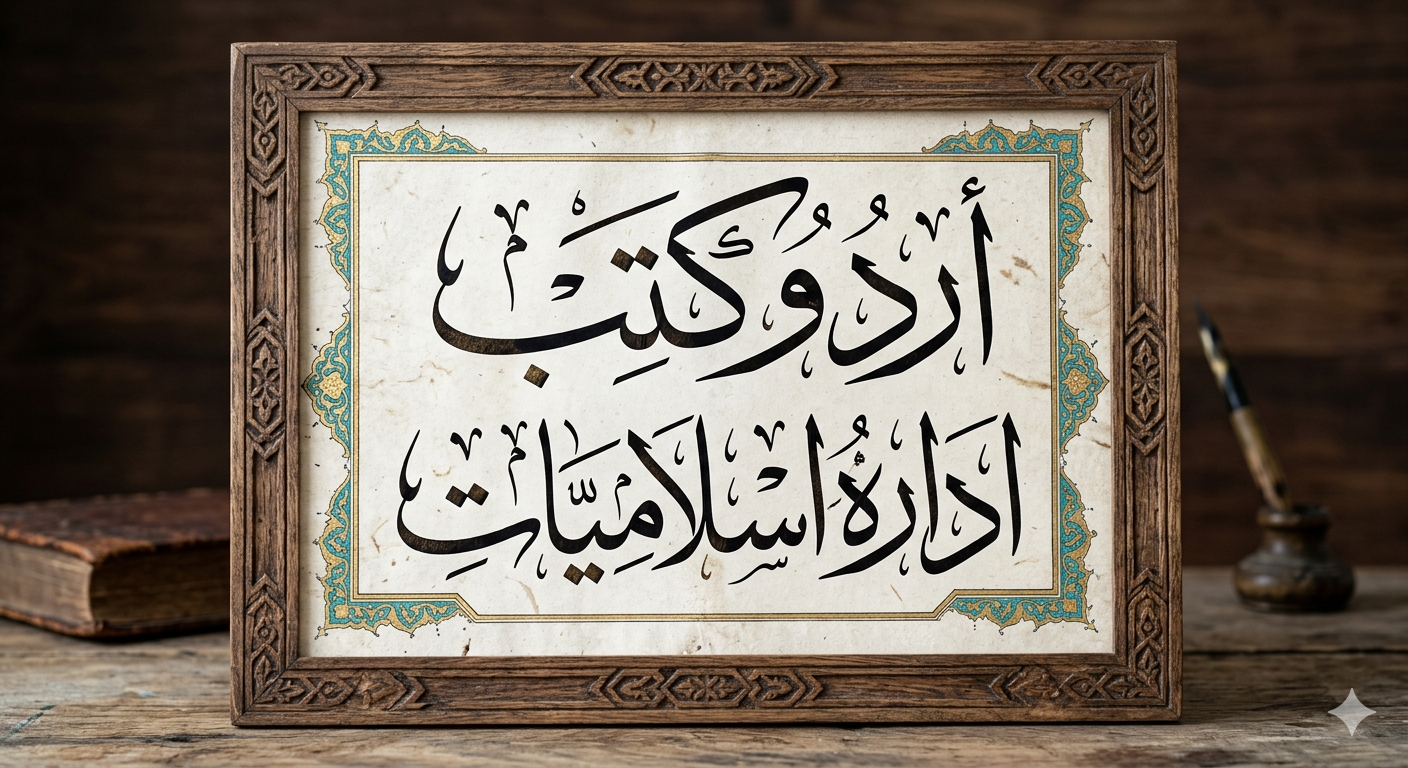 أردُو كتِب
ادارۂ اسلامیّاتِ